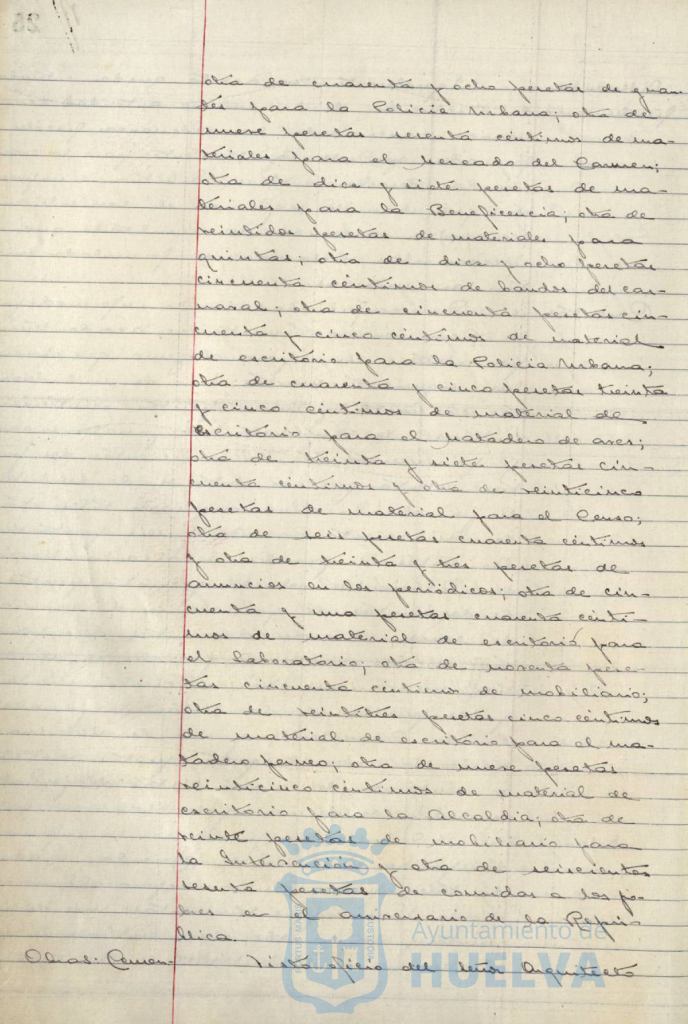 otra de cuarenta y ocho pesetas de guan-
tes para la Policia Urbana; otra de
nueve pesetas sesenta céntimos de ma-
teriales para el Mercado del Carmen;
otra de diez y siete pesetas de ma-
teriales para la Beneficencia; otra de
veintidos pesetas de materiales para
quintas; otra de diez y ocho pesetas
cincuenta céntimos de bandos del car-
naval; otra de cincuenta pesetas cin-
cuenta y cinco céntimos de material
de escritorio para la Policia Urbana;
otra de cuarenta y cinco pesetas treinta
y cinco céntimos de material de
escritorio para el Matadero de aves;
otra de treinta y siete pesetas cin-
cuenta céntimos y otra de veinticinco
pesetas de material para el Censo;
otra de seis pesetas cuarenta céntimos
y otra de treinta y tres pesetas de
anuncios en los periódicos; otra de cin-
cuenta y una pesetas cuarenta cénti-
mos de material de escritorio para
el Laboratorio; otra de noventa pese-
tas cincuenta céntimos de mobiliario;
otra de veintitres pesetas cinco céntimos
de material de escritorio para el ma-
tadero porneo; otra de nueve pesetas
veinticinco céntimos de material de
escritorio para la Alcaldia; otra de
veinte pesetas de mobiliario para
la Intervención y otra de seiscientas
sesenta pesetas de comidas a los po-
bres en el aniversario de la Repú-
blica.
Obras: Cemen- Visto oficio del Señor Arquitecto
Ayuntamiento de
HUELVA